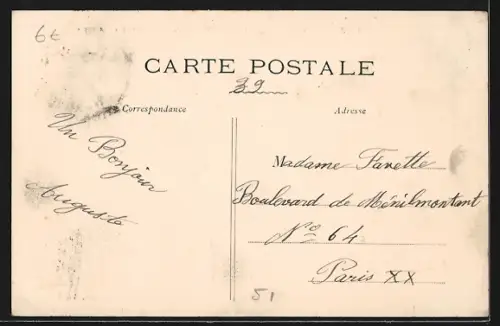 6€
CARTE POSTALE
39
Correspondance
Adresse
Un Bonjour
Auguste
Madame Favette
Boulevard de Ménilmontant
Nº 64
Paris XX
51